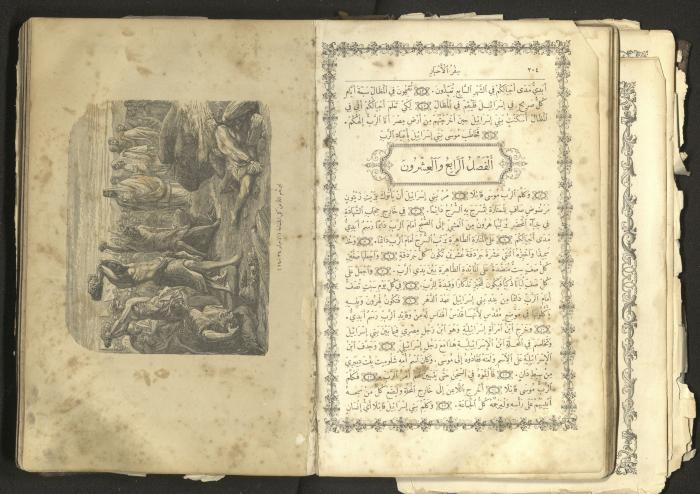 ٢٠٤
سِفْرُ ٱلْأَحْبَارِ
أَبَدِيٌّ مَدَى أَجْيَالِكُمْ فِي الشَّهْرِ السَّابِعِ تُعَيِّدُونَهُ. تُقِيمُونَ فِي الْمَظَالِّ سَبْعَةَ أَيَّامٍ
كُلُّ صَرِيحٍ فِي إِسْرَائِيلَ فَلْيُقِمْ فِي الْمَظَالِّ لِكَيْ تَعْلَمَ أَجْيَالُكُمْ أَنِّي فِي
الْمَظَالِّ أَسْكَنْتُ بَنِي إِسْرَائِيلَ حِينَ أَخْرَجْتُهُمْ مِنْ أَرْضِ مِصْرَ أَنَا الرَّبُّ إِلٰهُكُمْ.
فَخَاطَبَ مُوسَى بَنِي إِسْرَائِيلَ بِأَعْيَادِ الرَّبِّ
اَلْفَصْلُ ٱلرَّابِعُ وَٱلْعِشْرُونَ
وَكَلَّمَ الرَّبُّ مُوسَى قَائِلًا مُرْ بَنِي إِسْرَائِيلَ أَنْ يَأْتُوكَ بِزَيْتِ زَيْتُونٍ
مَرْضُوضٍ صَافٍ لِلْمَنَارَةِ لِتُسْرَجَ بِهِ السُّرُجُ دَائِمًا. فِي خَارِجِ حِجَابِ الشَّهَادَةِ
فِي خِبَاءِ الْمَحْضَرِ يُرَتِّبُهَا هٰرُونُ مِنَ الْعَشِيِّ إِلَى الصُّبْحِ أَمَامَ الرَّبِّ دَائِمًا رَسْمٌ أَبَدِيٌّ
مَدَى أَجْيَالِكُمْ عَلَى الْمَنَارَةِ الطَّاهِرَةِ يُرَتِّبُ السُّرُجَ أَمَامَ الرَّبِّ دَائِمًا. وَخُذْ
سَمِيذًا وَاخْبِزْهُ اثْنَتَيْ عَشْرَةَ جَرْدَقَةً عُشْرَيْنِ تَكُونُ كُلُّ جَرْدَقَةٍ وَاجْعَلْهَا صَفَّيْنِ
كُلُّ صَفٍّ سِتٌّ مُنَضَّدَةً عَلَى الْمَائِدَةِ الطَّاهِرَةِ بَيْنَ يَدَيِ الرَّبِّ. وَاجْعَلْ عَلَى
كُلِّ صَفٍّ لُبَانًا ذَكِيًّا فَيَكُونَ لِلْخُبْزِ تَذْكَارًا وَقِيدَةً لِلرَّبِّ. فِي كُلِّ يَوْمِ سَبْتٍ تُصَفُّ
أَمَامَ الرَّبِّ دَائِمًا مِنْ عِنْدِ بَنِي إِسْرَائِيلَ عَهْدَ الدَّهْرِ فَتَكُونُ لِهٰرُونَ وَبَنِيهِ
يَأْكُلُونَهَا فِي مَوْضِعٍ مُقَدَّسٍ لِأَنَّهَا قُدْسُ أَقْدَاسٍ لَهُ مِنْ وَقَائِدِ الرَّبِّ رَسْمٌ أَبَدِيٌّ.
وَخَرَجَ ابْنُ امْرَأَةٍ إِسْرَائِيلِيَّةٍ وَهُوَ ابْنُ رَجُلٍ مِصْرِيٍّ فِيمَا بَيْنَ بَنِي إِسْرَائِيلَ
وَتَخَاصَمَ فِي الْمَحَلَّةِ ابْنُ الْإِسْرَائِيلِيَّةِ هٰذَا مَعَ رَجُلٍ إِسْرَائِيلِيٍّ وَجَدَّفَ ابْنُ
الْإِسْرَائِيلِيَّةِ عَلَى الِاسْمِ وَلَعَنَهُ فَقَادُوهُ إِلَى مُوسَى. وَكَانَ اسْمُ أُمِّهِ شَلُومِيتَ بِنْتَ دِبْرِي
مِنْ سِبْطِ دَانٍ. فَأَلْقَوْهُ فِي السِّجْنِ حَتَّى يَتَبَيَّنَ لَهُمْ أَمْرُ الرَّبِّ. فَكَلَّمَ
الرَّبُّ مُوسَى قَائِلًا أَخْرِجِ اللَّاعِنَ إِلَى خَارِجِ الْمَحَلَّةِ وَلْيَضَعْ كُلُّ مَنْ سَمِعَهُ
أَيْدِيَهُمْ عَلَى رَأْسِهِ وَلْيَرْجُمْهُ كُلُّ الْجَمَاعَةِ. وَكَلِّمْ بَنِي إِسْرَائِيلَ قَائِلًا أَيُّ إِنْسَانٍ